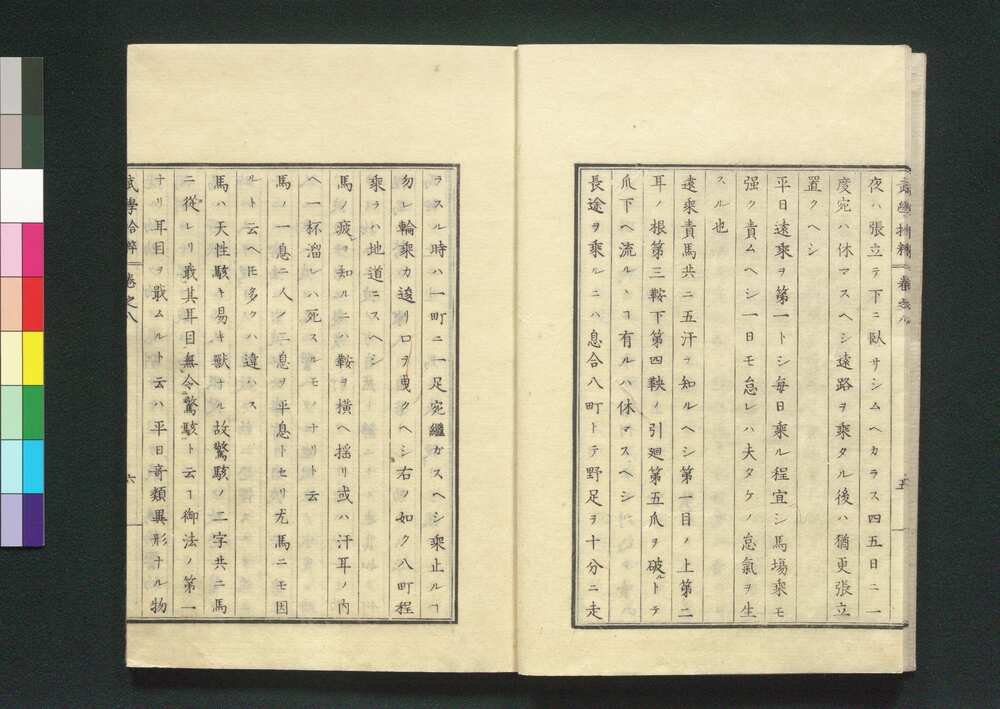 武學拾粹 卷之八 五
夜ハ張立テ下ニ臥サシムヘカラス四五日ニ一
度宛ハ休マスヘシ遠路ヲ乘タル後ハ猶更張立
置クヘシ
平日遠乘ヲ第一トシ每日乘ル程宜シ馬場乘モ
强ク責ムヘシ一日モ怠レハ夫タケノ怠氣ヲ生
スル也
遠乘責馬共ニ五汗ヲ知ルヘシ第一目ノ上第二
耳ノ根第三鞍下第四鞅ノ引廻第五爪ヲ破トテ
爪下ヘ流ルヽヿ有ルハ休マスヘシ
長途ヲ乘ルニハ息合八町トテ野足ヲ十分ニ走
ラスル時ハ一町ニ一足宛繼ガスヘシ乘止ルヿ
勿レ輪乘カ逡リ口ヲ曳クヘシ右ノ如ク八町程
乘ラハ地道ニスヘシ
馬ノ疲ヲ知ルニハ鞍ヲ橫ヘ搖リ或ハ汗耳ノ內
ヘ一杯溜レハ死スルモノナリト云
馬ノ一息ニ人ノ二息ヲ平息トセリ尤馬ニモ因
ルト云ヘ𪜈多クハ違ハス
馬ハ天性駭キ易キ獸ナル故驚駭ノ二字共ニ馬
ニ從ヘリ戢其耳目無令驚駭ト云ヿ御法ノ第一
ナリ耳目ヲ戢ムルト云ハ平日奇類異形ナル物
武學拾粹 卷之八 六